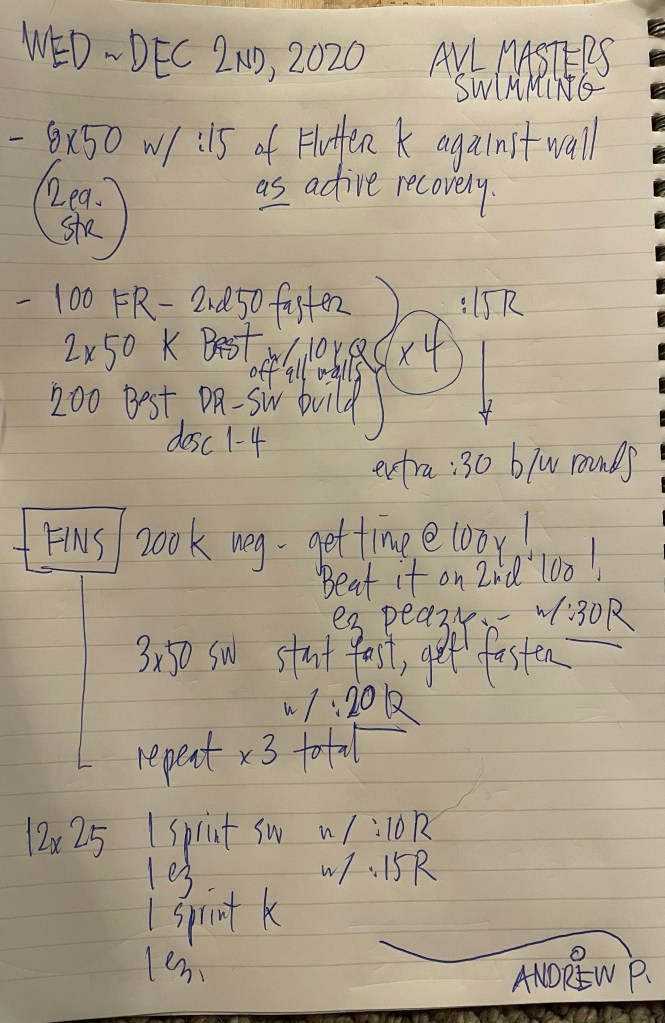 WED ~ DEC 2ND, 2020 AVL MASTERS
SWIMMING
- 8x50 w/ :15 of Flutter K against wall
as active recovery.
(2 ea.
str)
- 100 FR - 2nd 50 faster
2x50 K Best w/ 10 yd
off all walls
200 Best DR-SW build
desc 1-4
x4
:15R
extra :30 b/w rounds
- FINS 200 K neg - get time @ 100y!
Beat it on 2nd 100!
ez peazy.- w/ :30R
3x50 SW start fast, get faster
w/ :20 R
repeat x 3 total
12x25 1 sprint sw w/ :10R
1 ez w/ :15R
1 sprint K
1 ez.
ANDREW P.